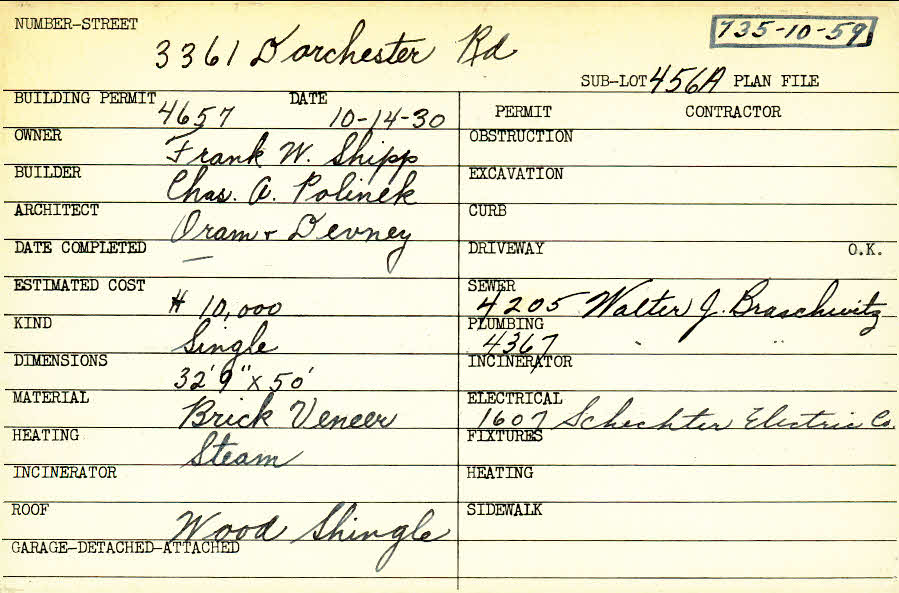 NUMBER-STREET
735-10-59
3361 Dorchester Rd
SUB-LOT 456A PLAN FILE
BUILDING PERMIT 4657 DATE 10-14-30
PERMIT CONTRACTOR
OWNER Frank W. Shipp
OBSTRUCTION
BUILDER Chas. A. Polinek
EXCAVATION
ARCHITECT Oram & Devney
CURB
DATE COMPLETED —
DRIVEWAY O.K.
ESTIMATED COST # 10,000
SEWER 4205 Walter J. Braschwitz
KIND Single
PLUMBING 4367 " "
DIMENSIONS 32'9" x 50'
INCINERATOR
MATERIAL Brick Veneer
ELECTRICAL 1607 Schechter Electric Co.
HEATING Steam
FIXTURES
INCINERATOR
HEATING
ROOF Wood Shingle
SIDEWALK
GARAGE-DETACHED-ATTACHED